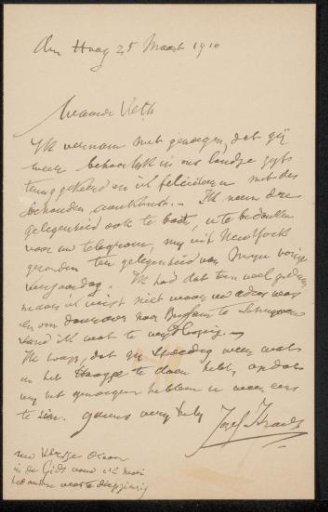 Den Haag 25 Maart 1910
Waarde Veth
Ik vernam met genoegen, dat gij
weer behoorlijk in ons landje zijt
teruggekeerd en ik feliciteer met de
behouden aankomst. - Ik neem deze
gelegenheid ook te baat, u te bedanken
voor uw telegram, mij uit New York
gezonden ter gelegenheid van mijn vorige
verjaardag. Ik had dat wel
maar ik wist niet waar uw adres was
en om daarover naar Bussum te
vond ik wat te
Ik hoop, dat gij spoedig weer wat
in het Haagje te doen hebt, opdat
wij het genoegen hebben u weer eens
te zien. geheel
Jozef Israels
uw
in de Gids vond ik mooi